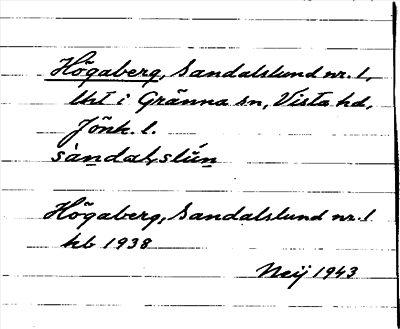 Högaberg, Sandalslund nr. 1,
lht i Gränna sn, Vista hd,
Jönk. l.
sàndalslún
Högaberg, Sandalslund nr. 1
kb 1938
Neij 1943